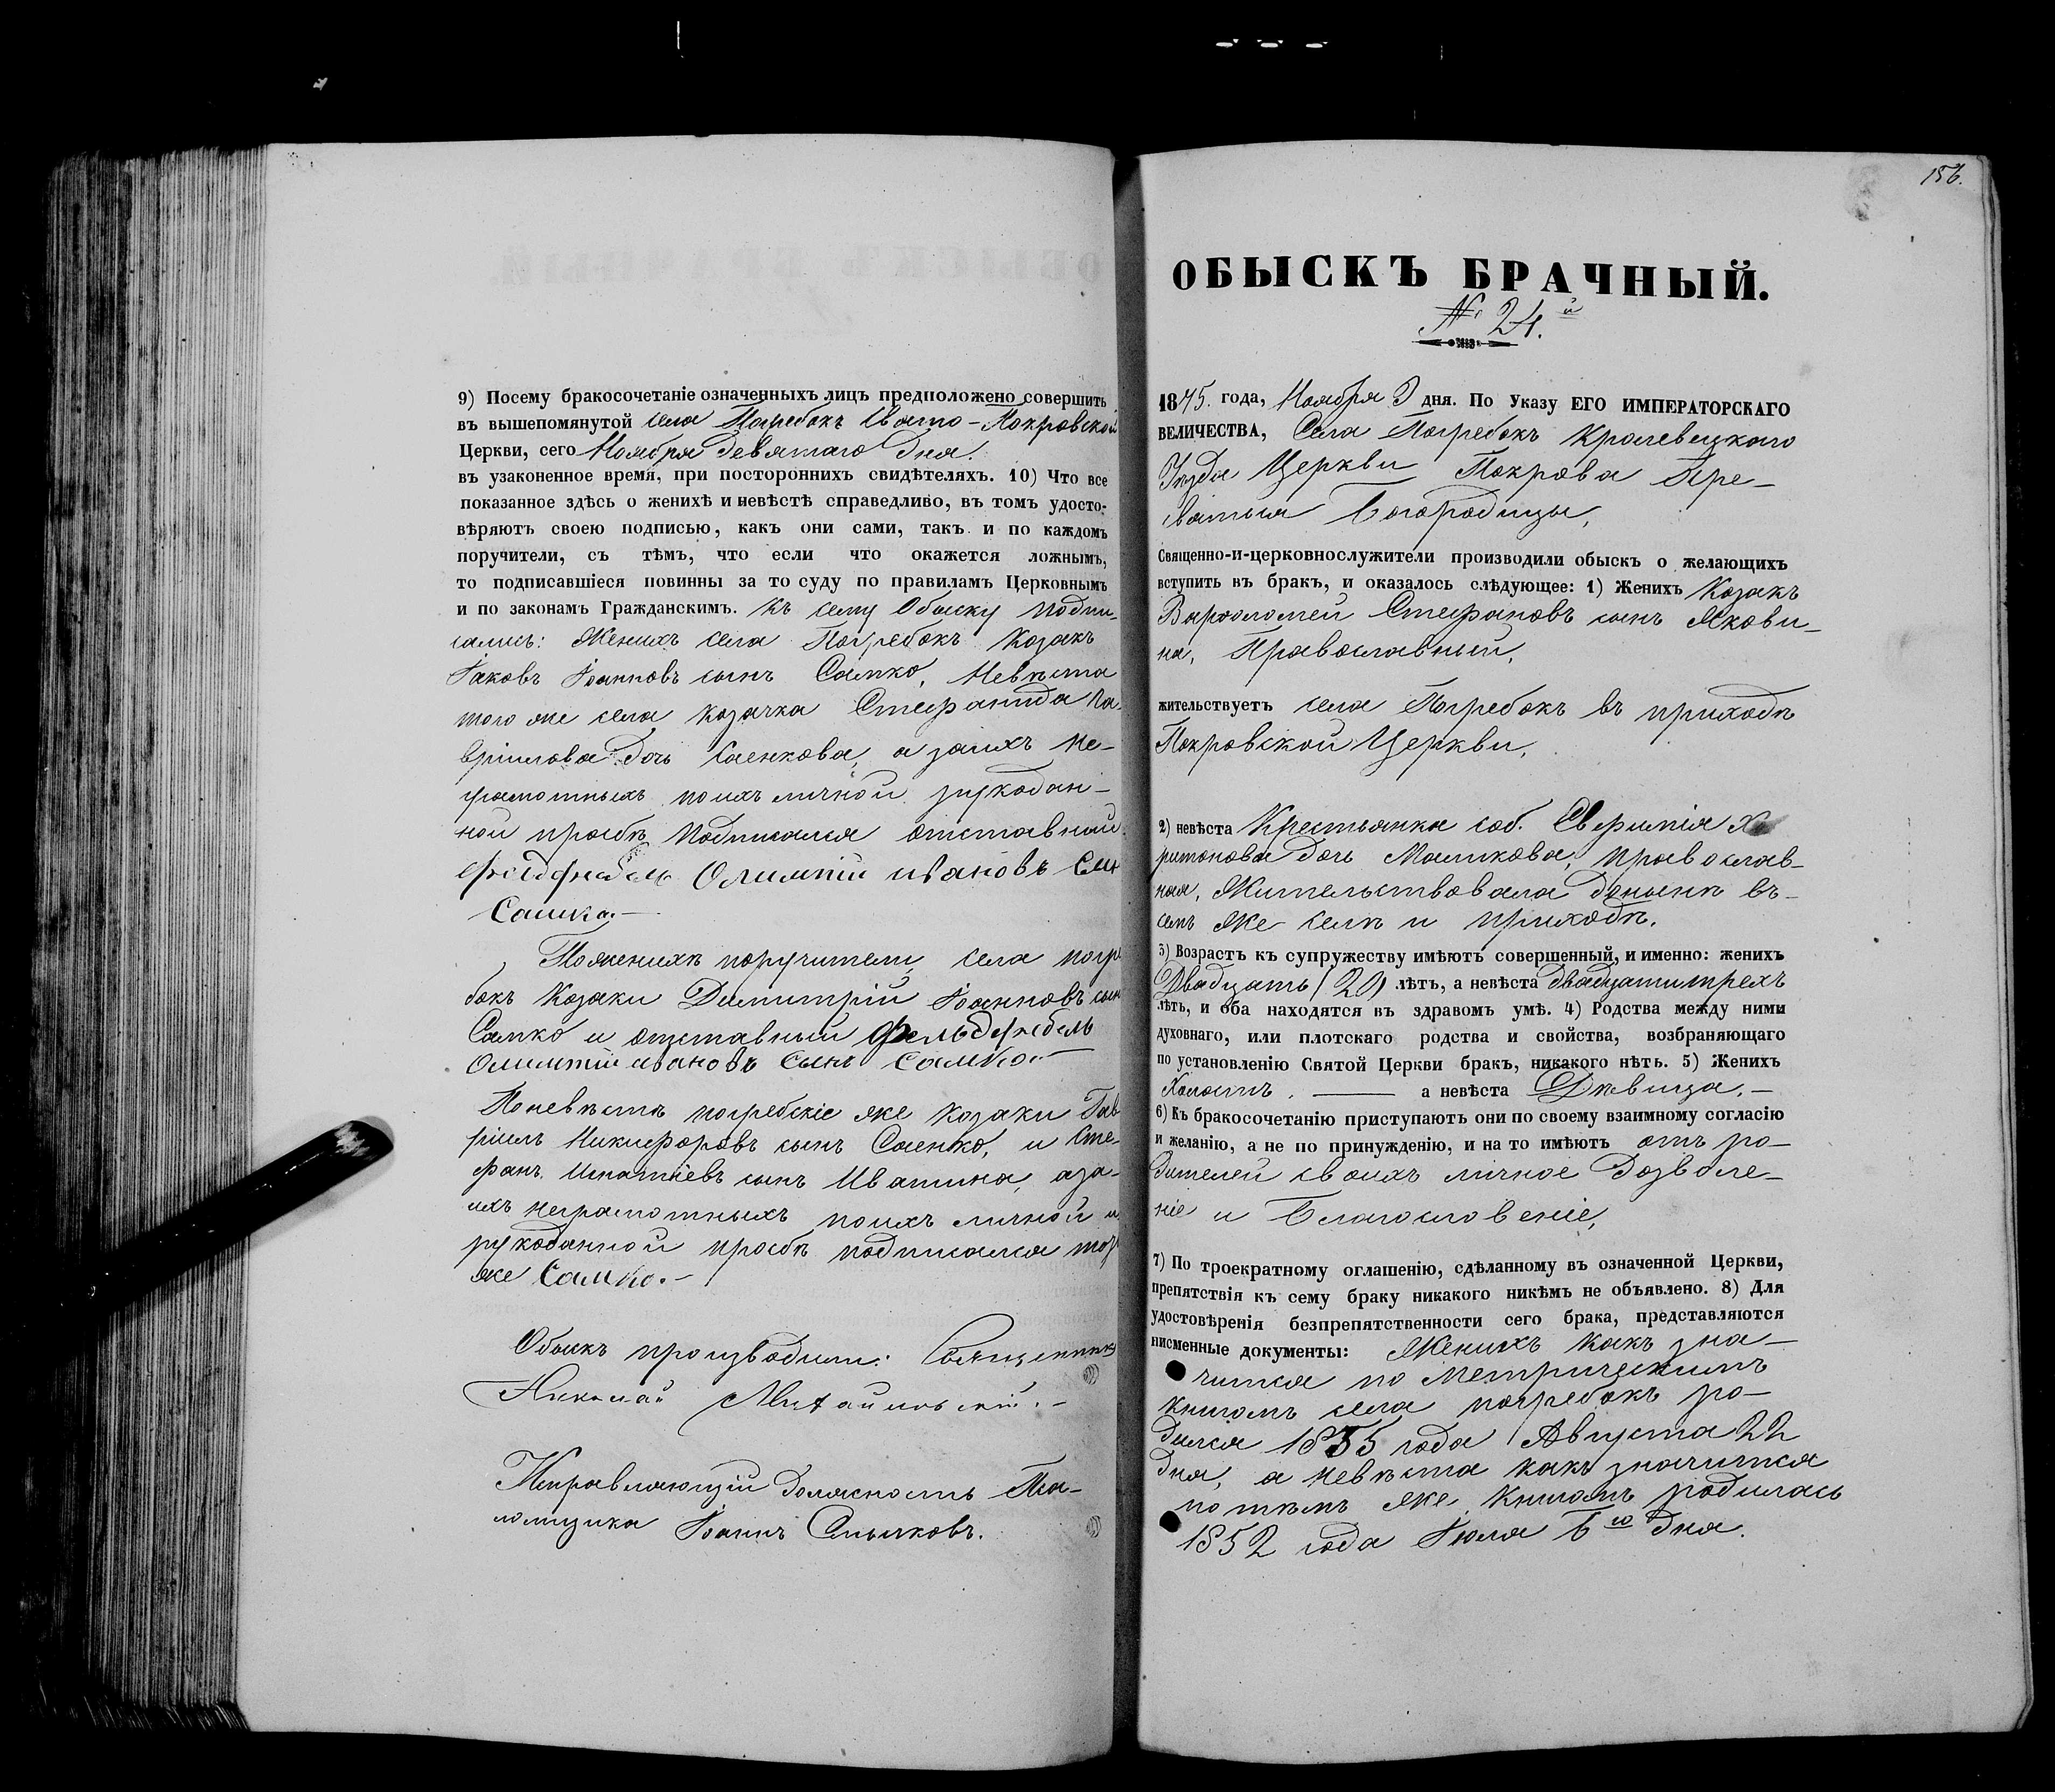 9) Посему бракосочетаніе означенныхъ лицъ предположено совершить
въ вышепомянутой села Погребокъ Свято-Покровской
Церкви, сего Ноября девятаго дня.
въ узаконенное время, при постороннихъ свидѣтеляхъ. 10) Что все
показанное здѣсь о женихѣ и невѣстѣ справедливо, въ томъ удосто-
вѣряютъ своею подписью, какъ они сами, такъ и по каждомъ
поручители, съ тѣмъ, что если что окажется ложнымъ,
то подписавшіеся повинны за то суду по правиламъ Церковнымъ
и по законамъ Гражданскимъ. Къ сему Обыску подпи-
сались: Женихъ села Погребокъ Козакъ
Іаковъ Іоанновъ сынъ Самко, Невѣста
того же села козачка Стефанида Га-
вріилова дочь Саенкова, а заихъ не-
грамотныхъ поихъ личной рукодан-
ной прозбѣ подписался отставный
Олимпій ивановъ сын
Самко.—
Поженихѣ поручители, села погре
бокъ Козаки Димитрій Іоанновъ сын
Самко и отставный фельдфебель
Олимпій ивановъ Сынъ Самко.—
Поневѣстѣ погребскіе же козаки Гав
ріилъ Никифоровъ сынъ Саенко, и Сте-
фанъ Игнатіевъ сынъ Иватина, аза-
ихъ неграмотныхъ поихъ личной и
рукоданной прозбѣ подписался тот
же Самко.—
Обыскъ производили: Священникъ
Николай Михайловскій.—
Исправляющій должность Пса-
ломщика Іоаннъ Смычковъ.
156.
ОБЫСКЪ БРАЧНЫЙ.
№ 24.й
1875. года, Ноября 9 дня. По Указу ЕГО ИМПЕРАТОРСКАГО
ВЕЛИЧЕСТВА, Села Погребокъ Кролевецкаго
Уѣзда Церкви Покрова Пре-
святыя Богородицы,
Священно-и-церковнослужители производили обыскъ о желающихъ
вступить въ бракъ, и оказалось слѣдующее: 1) Женихъ Козакъ
Варфоломей Стефановъ сынъ Якови-
на, Православный,
жительствуетъ села Погребокъ въ приходѣ
Покровской Церкви,
2) невѣста Крестьянка соб. Евфимія Ха
ритонова дочь Маликова, православ-
ная, Жительствовала донынѣ въ-
семъ же селѣ и приходѣ.
3) Возрастъ къ супружеству имѣютъ совершенный, и именно: женихъ
Двадцать (20) лѣтъ, а невѣста двадцатитрехъ
лѣтъ, и оба находятся въ здравомъ умѣ. 4) Родства между ними
духовнаго, или плотскаго родства и свойства, возбраняющаго
по установленію Святой Церкви бракъ, никакого нѣтъ. 5) Женихъ
Холостъ. — а невѣста Дѣвица.—
6) Къ бракосочетанію приступаютъ они по своему взаимному согласію
и желанію, а не по принужденію, и на то имѣютъ отъ ро-
дителей своихъ личное дозволе-
ніе и Благословеніе,
7) По троекратному оглашенію, сдѣланному въ означенной Церкви,
препятствія къ сему браку никакого никѣмъ не объявлено. 8) Для
удостовѣренія безпрепятственности сего брака, представляются
писменные документы: Женихъ какъ зна-
чится по Метрическимъ
книгамъ села погребокъ ро-
дился 1855 года Августа 22
дня, а невѣста какъ значится
по тѣмъ же книгамъ родилась
1852 года Іюля 6го дня.